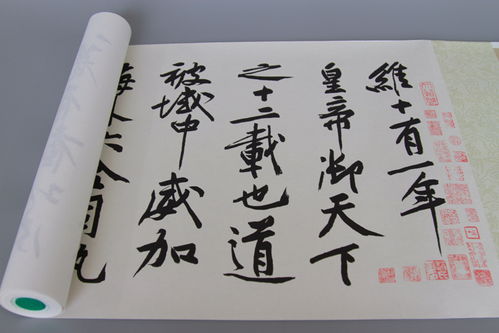 維十有一年
皇帝御天下
之十二載也道
被域中威加
海 六合同軌